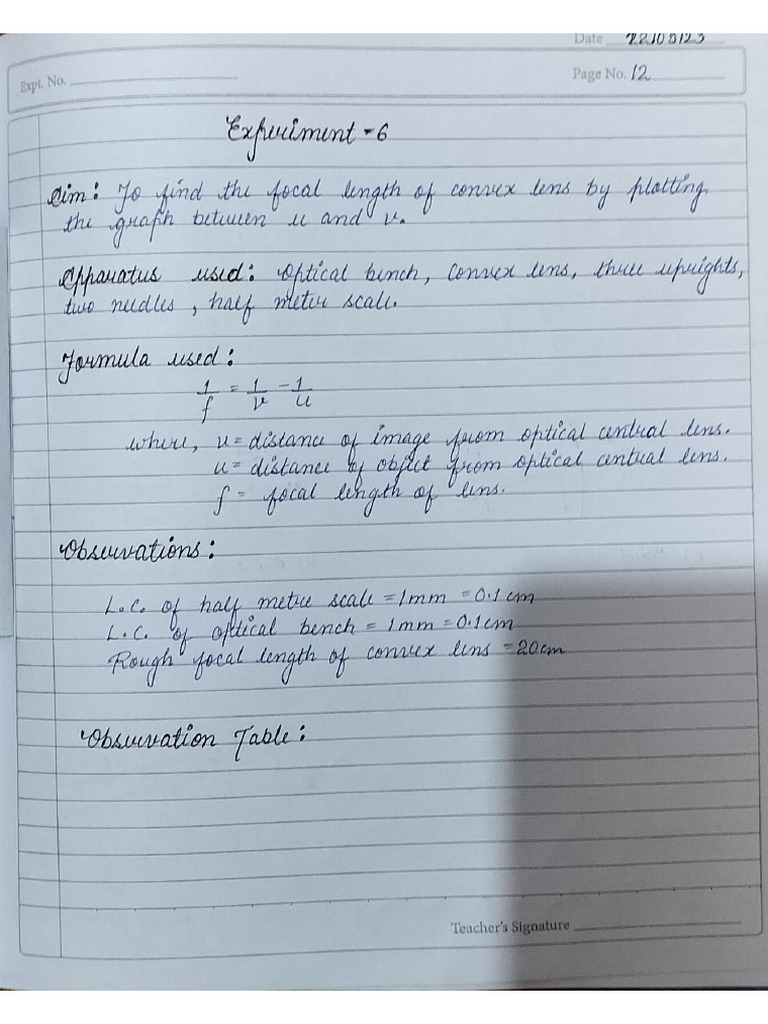 Date 22/05/23
Expt. No.
Page No. 12
Experiment - 6
Aim: To find the focal length of convex lens by plotting
the graph between u and v.
Apparatus used: Optical bench, Convex lens, three uprights,
two needles, half meter scale.
Formula used:
1/f = 1/v - 1/u
where, v = distance of image from optical central lens.
u = distance of object from optical central lens.
f = focal length of lens.
Observations:
L.C. of half metre scale = 1mm = 0.1 cm
L.C. of optical bench = 1mm = 0.1cm
Rough focal length of convex lens = 20cm
Observation Table:
Teacher's Signature